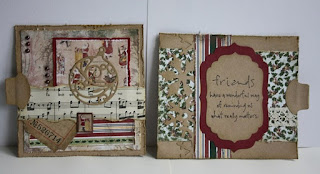 friends
have a wonderful way
of reminding us
what really matters